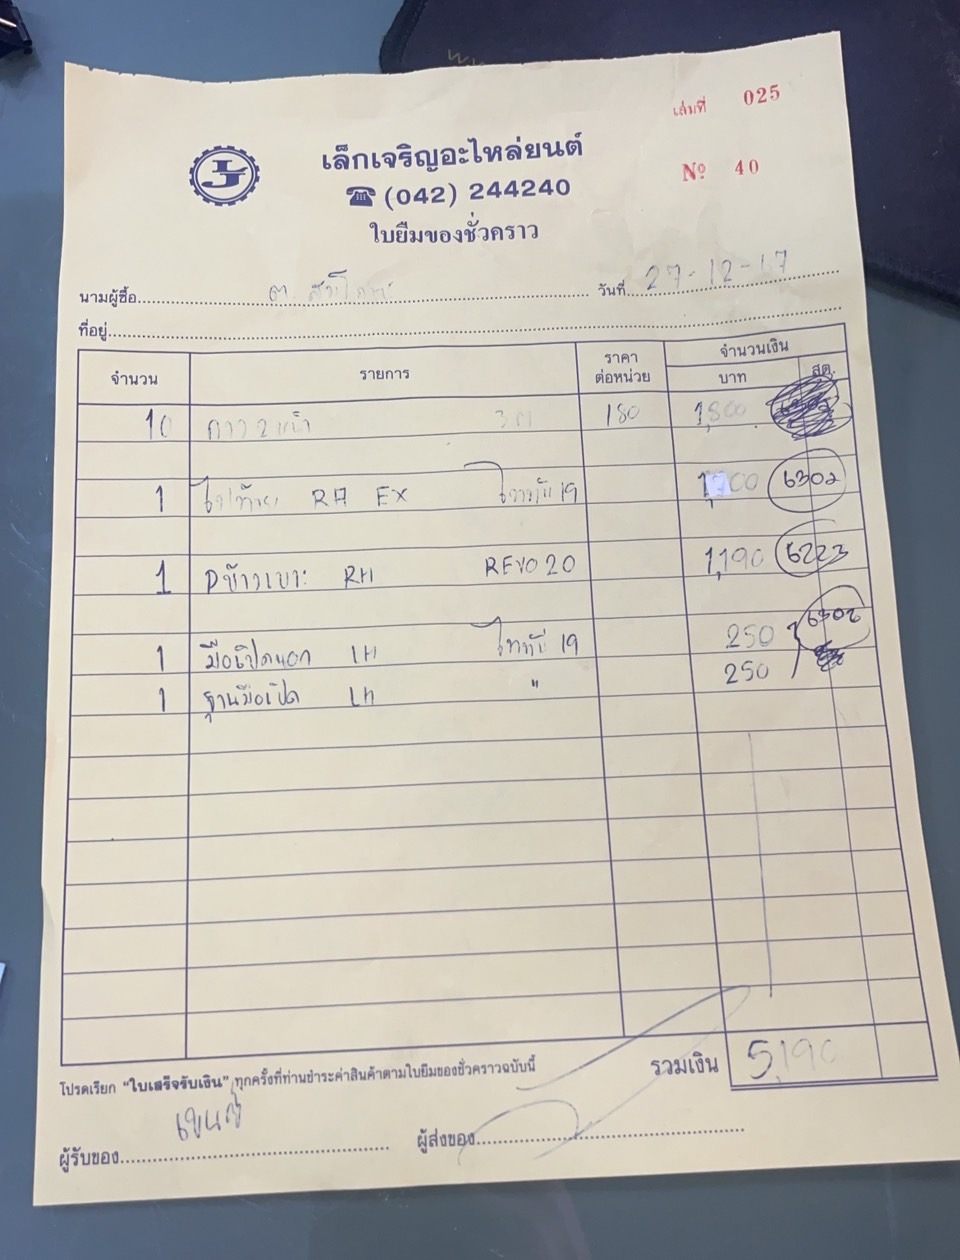 เล่มที่ 025
เล็กเจริญอะไหล่ยนต์
Nº 40
☎ (042) 244240
ใบยืมของชั่วคราว
นามผู้ซื้อ วันที่ 27-12-17
ที่อยู่
จำนวน รายการ ราคาต่อหน่วย จำนวนเงิน
บาท สต.
10 กาว 2 หน้า 3M 180 1,800
1 RH EX 19 6302
1 RH REVO 20 1,190 6223
1 มือเปิดนอก LH 19 250 6302
1 ฐานมือเปิด LH " 250
รวมเงิน 5,190
โปรดเรียก "ใบเสร็จรับเงิน" ทุกครั้งที่ท่านชำระค่าสินค้าตามใบยืมของชั่วคราวฉบับนี้
ผู้รับของ ผู้ส่งของ